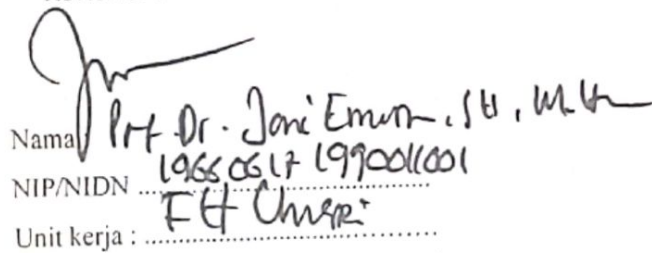 Nama Prof. Dr. Joni Emirzon, SH, M.Hum
NIP/NIDN 196606171990011001
Unit kerja : FH Unsri